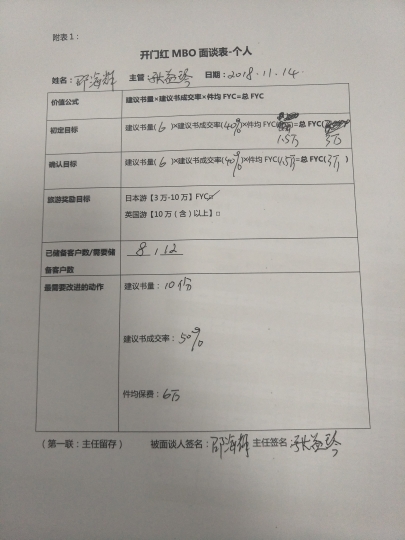 附表1：
开门红 MBO 面谈表-个人
姓名：邵海辉 主管 日期：2018.11.14.
价值公式 建议书量×建议书成交率×件均 FYC=总 FYC
初定目标 建议书量(6)×建议书成交率(40%)×件均 FYC(1.5万)=总 FYC(3万)
确认目标 建议书量(6)×建议书成交率(40%)×件均 FYC(1.5万)=总 FYC(3万)
旅游奖励目标 日本游【3 万-10 万】FYC☑
英国游【10 万（含）以上】□
已储备客户数/需要储 8 / 12
备客户数
最需要改进的动作 建议书量：10份
建议书成交率：50%
件均保费：6万
（第一联：主任留存） 被面谈人签名：邵海辉 主任签名：